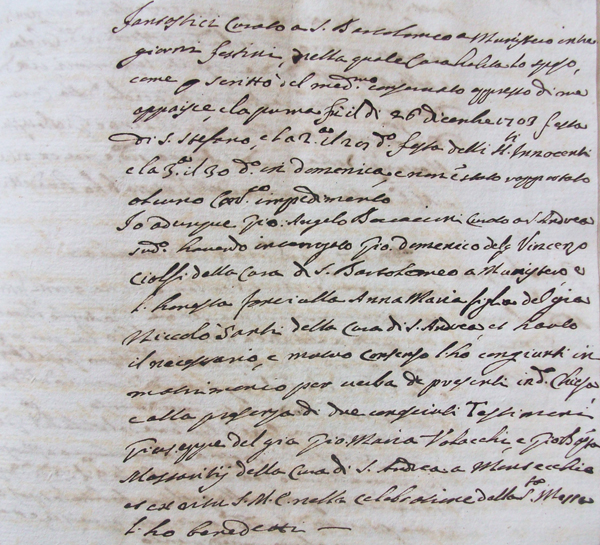 Fantostici Curato a S. Bartolomeo a Munistero in tre
giorni festivi, nella quale Cura habita lo sposo,
come p scritto del med.mo conservato appresso di me
apparisce, e la prima fu il dì 26 dicembre 1703 festa
di S. Stefano, e la 2.a il dì d.o festa delli SS.ti Innocenti
e la 3.a il 30 d.o in domenica, e non è stato rapportato
alcuno Can.co impedimento
Io adunque Gio: Angelo Curato a S. Andrea
sud.o havendo interrogato Gio: domenico del q Vincenzo
Ciolfi della Cura di S. Bartolomeo a Munistero e
l'honesta fanciulla Anna Maria figlia del già
Niccolò Santi della Cura di S. Andrea, et havuto
il necessario, e mutuo consenso l'ho congiunti in
matrimonio per verba de presenti in d.a Chiesa
e alla presenza di due conosciuti Testimonj
Giuseppe del già Gio: Maria e Gio: Bta
della Cura di S. Andrea a Montecchio
et ex ritu S. M. C. nella celebrazione della S.ta Messa
l'ho benedetti —